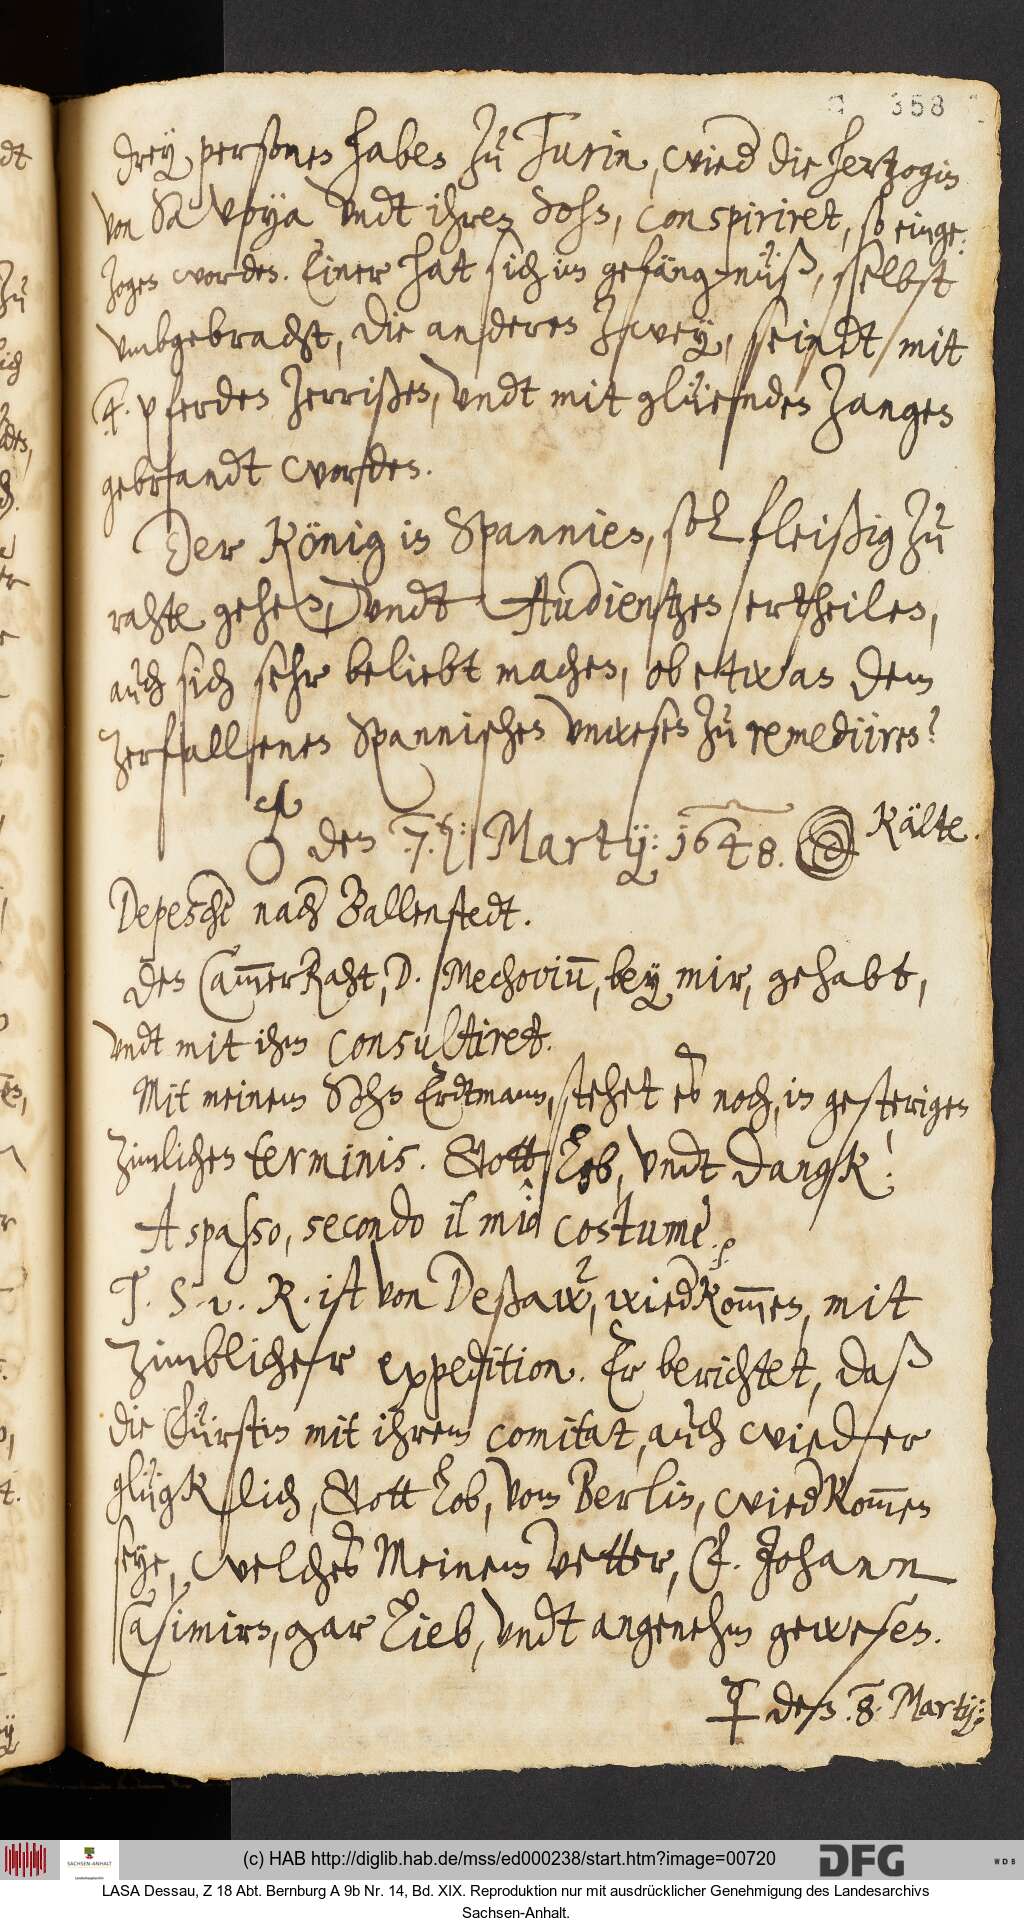 358
drey personen haben zu Turin, wied die hertzogin
von Savoya undt ihren Sohn, conspiriret, so einge-
zogen worden. Einer hatt sich im gefängnüß, selbst
umbgebracht, die anderen zwey, seindt mit
4. pferden zerrißen, undt mit glüenden zangen
gebrandt worden.
Der König in Spannien, soll fleißig zu
rahte gehen, undt Audientzen ertheilen,
auch sich sehr beliebt machen, ob etwas dem
zerfallenen Spannischen unwesen zu remediiren?
♂ den 7. Martij: 1648. Kälte.
Depeschè nach Ballenstedt.
Den CammerRaht, D. Mechovium, bey mir, gehabt,
undt mit ihm consultiret.
Mit meinem Sohn Erdtmann, stehet es noch, in gesterigen
zimlichen terminis. Gott lob, undt dangk!
A spasso, secondo il mio costume.
T. S. v. R. ist von Deßaw, wiedkommen, mit
zimblicher expedition. Er berichtet, daß
die Fürstin mit ihrem comitat, auch wieder
glügklich, Gott lob, vom Berlin, wiedkommen
seye, welches Meinem Vetter, F. Johann
Casimirn, gar lieb, undt angenehm gewesen.
☿ den 8. Martij:
(c) HAB http://diglib.hab.de/mss/ed000238/start.htm?image=00720
SACHSEN-ANHALT
DFG
WDB
LASA Dessau, Z 18 Abt. Bernburg A 9b Nr. 14, Bd. XIX. Reproduktion nur mit ausdrücklicher Genehmigung des Landesarchivs
Sachsen-Anhalt.